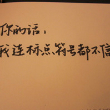 你的话，
我连标点符号都不信